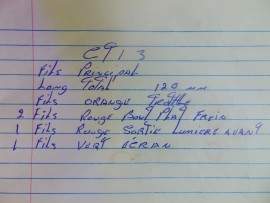 C913
Fils Principal
Long Total 120 mm
Fils ORANGE
2 Fils Rouge Bout Plat Frein
1 Fils Rouge SORTIE Lumiere AVANT
1 Fils VERT ÉCRAN